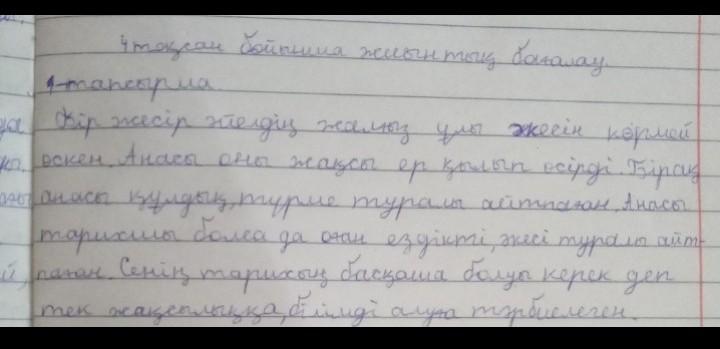 4 тоқсан бойынша жиынтық бағалау.
1-тапсырма.
Бір жесір әйелдің жалғыз ұлы әкесін көрмей
өскен. Анасы оны жақсы ер қылып өсірді. Бірақ
анасы құлдық, түрме туралы айтпаған. Анасы
тарихшы болса да оған ездікті, әкесі туралы айт-
паған. Сенің тарихың басқаша болуы керек деп
тек жақсылыққа, білімді алуға тәрбиелеген.